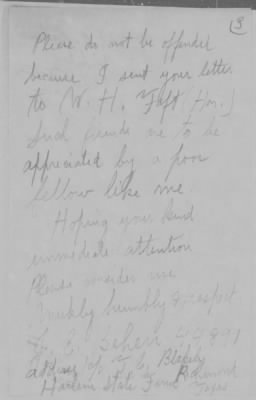 3
Please do not be offended
because I sent your letter
to W. H. Taft (Hon.)
Such friends are to be
appreciated by a poor
fellow like me.
Hoping your kind
immediate attention
Please consider me
humbly & respect.
44891
address c/o T. C. Blakely
Harlem State Farm Richmond
Texas.